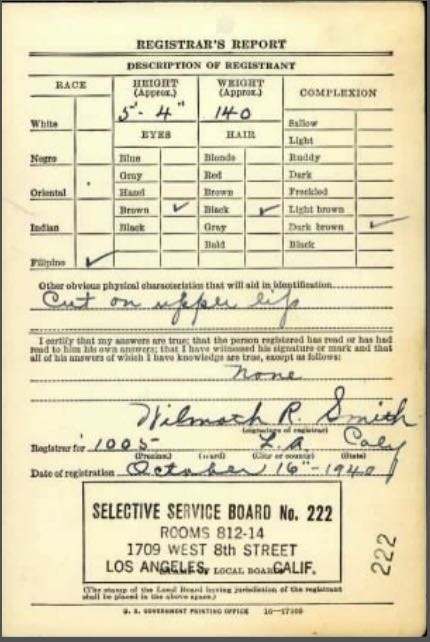 REGISTRAR'S REPORT
DESCRIPTION OF REGISTRANT
RACE
HEIGHT (Approx.)
WEIGHT (Approx.)
COMPLEXION
5' - 4"
140
White
Sallow
EYES
HAIR
Light
Negro
Blue
Blonde
Ruddy
Gray
Red
Dark
Oriental
Hazel
Brown
Freckled
Brown ✓
Black ✓
Light brown
Indian
Black
Gray
Dark brown ✓
Bald
Black
Filipino ✓
Other obvious physical characteristics that will aid in identification
Cut on upper lip
I certify that my answers are true; that the person registered has read or has had
read to him his own answers; that I have witnessed his signature or mark and that
all of his answers of which I have knowledge are true, except as follows:
None
Wilmoth R. Smith
(Signature of registrar)
Registrar for 1005 L.A. Calif
(Precinct) (Ward) (City or county) (State)
Date of registration October 16" - 1940
SELECTIVE SERVICE BOARD No. 222
ROOMS 812-14
1709 WEST 8th STREET
LOS ANGELES, CALIF.
LOCAL BOARD
222
(The stamp of the Local Board having jurisdiction of the registrant
shall be placed in the above space.)
U. S. GOVERNMENT PRINTING OFFICE 16-17105